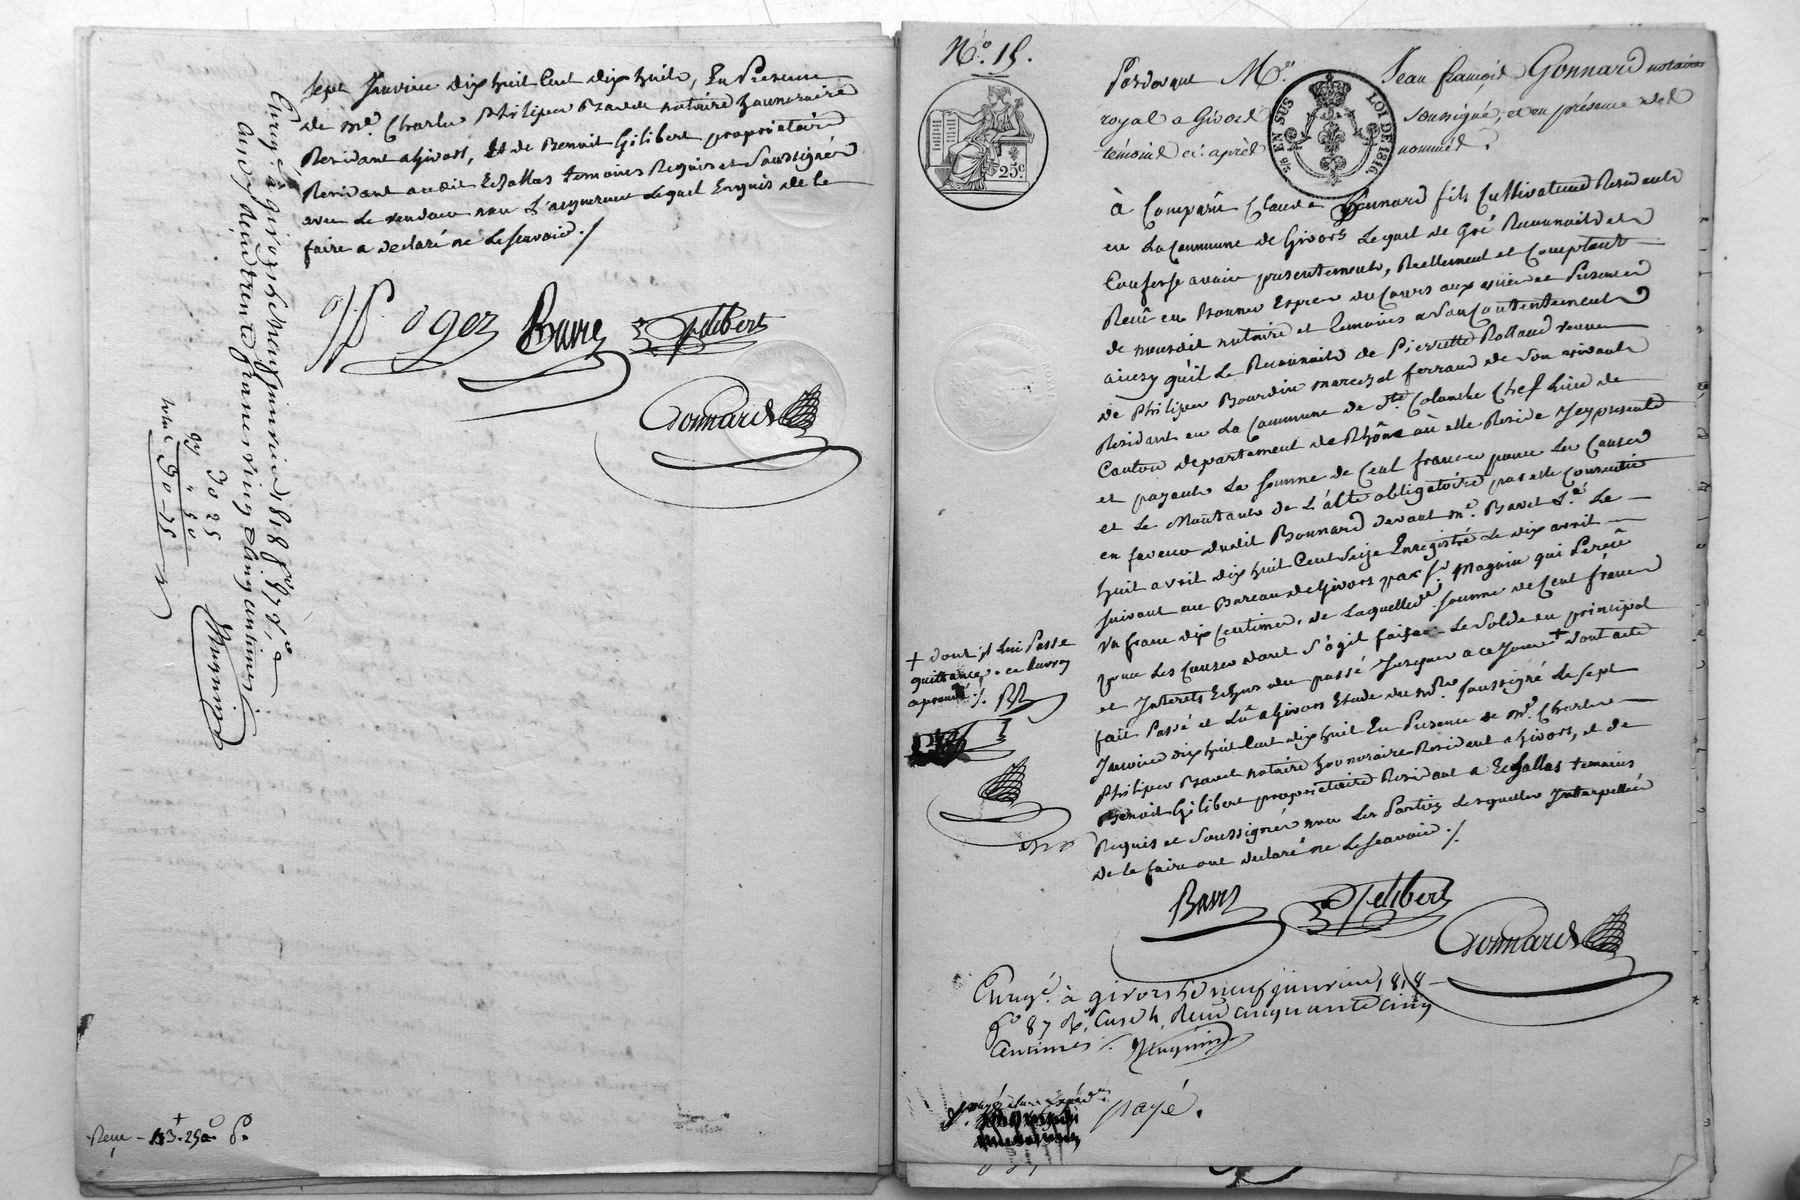 sept Janvier dix huit Cent dix huit, En Presence
de me. Charles Philipes Bavet notaire honnoraire
Residant a Givors, Et de Benoit Gilibert propriétaire
Residant audit Echallas temoins Requis et Soussignés
avec Le vendeur non L'acquereur Lequel Enquis de le
faire a declaré ne Le scavoir ./.
ogez Bavet Gilibert
Gonnard
Enreg.é à givors le neuf janvier 1818
trente francs vingt cinq centimes
30 25
Reçu
No. 15.
Pardevant Me. Jean françois Gonnard notaire
royal a Givors soussigné, et en présence des
témoins ci-après nommés.
25c
EN SUS
LOI DE 1816
à Comparû Claude Bonnard fils Cultivateur Residant
en La Commune de Givors Lequel de Gré Reconnait et
Confesse avoir presentement, Reellement et Comptant
Reçû en Bonnes Espece du Cours aux vüe et Presence
de mondit notaire et temoins a Son Contentement
ainsy qu'il Le Reconnait de Pierrette Rolland veuve
de Philipes Bourdin marez et ferrand de Son vivant
Residant en La Commune de Ste. Colombe Chef Lieu de
Canton departement du Rhône où elle Reside Icy presente
et payante La Somme de Cent francs pour Les Causes
et Le Montant de L'acte obligatoire par elle Consentie
en faveur dudit Bonnard devant me. Bavet Le
huit avril dix huit Cent Seize Enregistré Le dix avril
suivant au Bureau de Givors par Sr. Magnin qui Perçû
Un franc dix Centimes, de Laquelle de. Somme de Cent francs
pour Les Causes dont S'agit faisant Le Solde en principal
et Interets Echus du passé Jusques a ce Jour + dont acte
fait Passé et Lû a Givors Etude du me. Soussigné Le sept
Janvier dix huit Cent dix huit En Presence de me. Charles
Philipes Bavet notaire honnoraire Residant a Givors, et de
Benoit Gilibert propriétaire Residant a Echallas temoins
Requis et Soussignés non Les Parties Lesquelles Interpellées
de le faire ont declaré ne Le scavoir ./.
+ dont il Lui Passe
quittance
Bavet Gilibert
Gonnard
Enreg.é à givors le neuf janvier 1818
fo 87 Ro. Case 4. Reçu cinquante cinq
centimes. Magnin
payé.